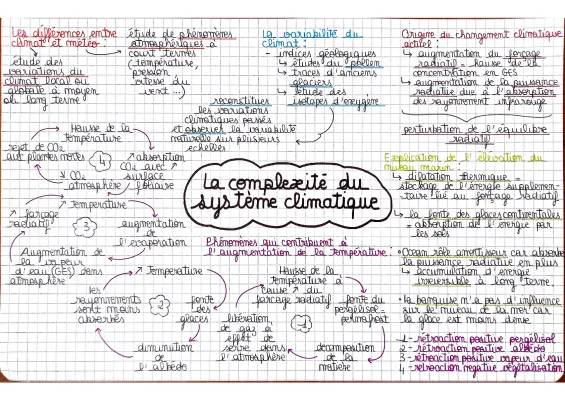 Les différences entre
climat et météo :
étude des
variations du
climat local ou
globale à moyen
ou long terme
étude de phénomènes
atmosphériques à
court termes
(température,
pression,
vitesse du
vent ...)
La variabilité du
climat :
- indices géologiques
↳ études du pollen
↳ traces d'anciens
glaciers
↳ étude des
isotopes d'oxygène
reconstitues
les variations
climatiques passés
et observer la variabilité
naturelle sur plusieurs
échelles
Origine du changement climatique
actuel :
↳ augmentation du forçage
radiatif = hausse de la
concentration en GES
↳ augmentation de la puissance
radiative due à l'absorption
des rayonnement infrarouge
perturbation de l'équilibre
radiatif
Explication de l'élévation du
niveau marin :
↳ dilatation thermique =
stockage de l'énergie supplémen-
taire lié au forçage radiatif
↳ la fonte des glaces continentales
= absorption de l'énergie par
les sols
• Océan rôle amortisseur car absorbe
la puissance radiative en plus
↳ accumulation d'énergie
irréversible à long terme.
• la banquise n'a pas d'influence
sur le niveau de la mer car
la glace est moins dense
1 - rétroaction positive pergélisol
2 - rétroaction positive albédo
3 - rétroaction positive vapeur d'eau
4 - rétroaction négative végétalisation
La complexité du
système climatique
Hausse de la
température
↗ absorption
CO₂ avec ↗
surface
↘ CO₂
atmosphère /
rejet de CO₂
aux plantes mortes
4
↗ température
augmentation
de
l'évaporation
Augmentation de
la vapeur
d'eau (GES) dans
atmosphère
↗ forçage
radiatif
3
Phénomènes qui contribuent à
l'augmentation de la température :
↗ Température
fonte
des
glaces
diminution
de
l'albédo
les
rayonnements
sont moins
absorbés
2
Hausse de la
température à
cause ↗ du
forçage radiatif
fonte du
pergélisol=
permafrost
décomposition
de la
matière
libération
de gaz à
effet de
serre dans
l'atmosphère
1